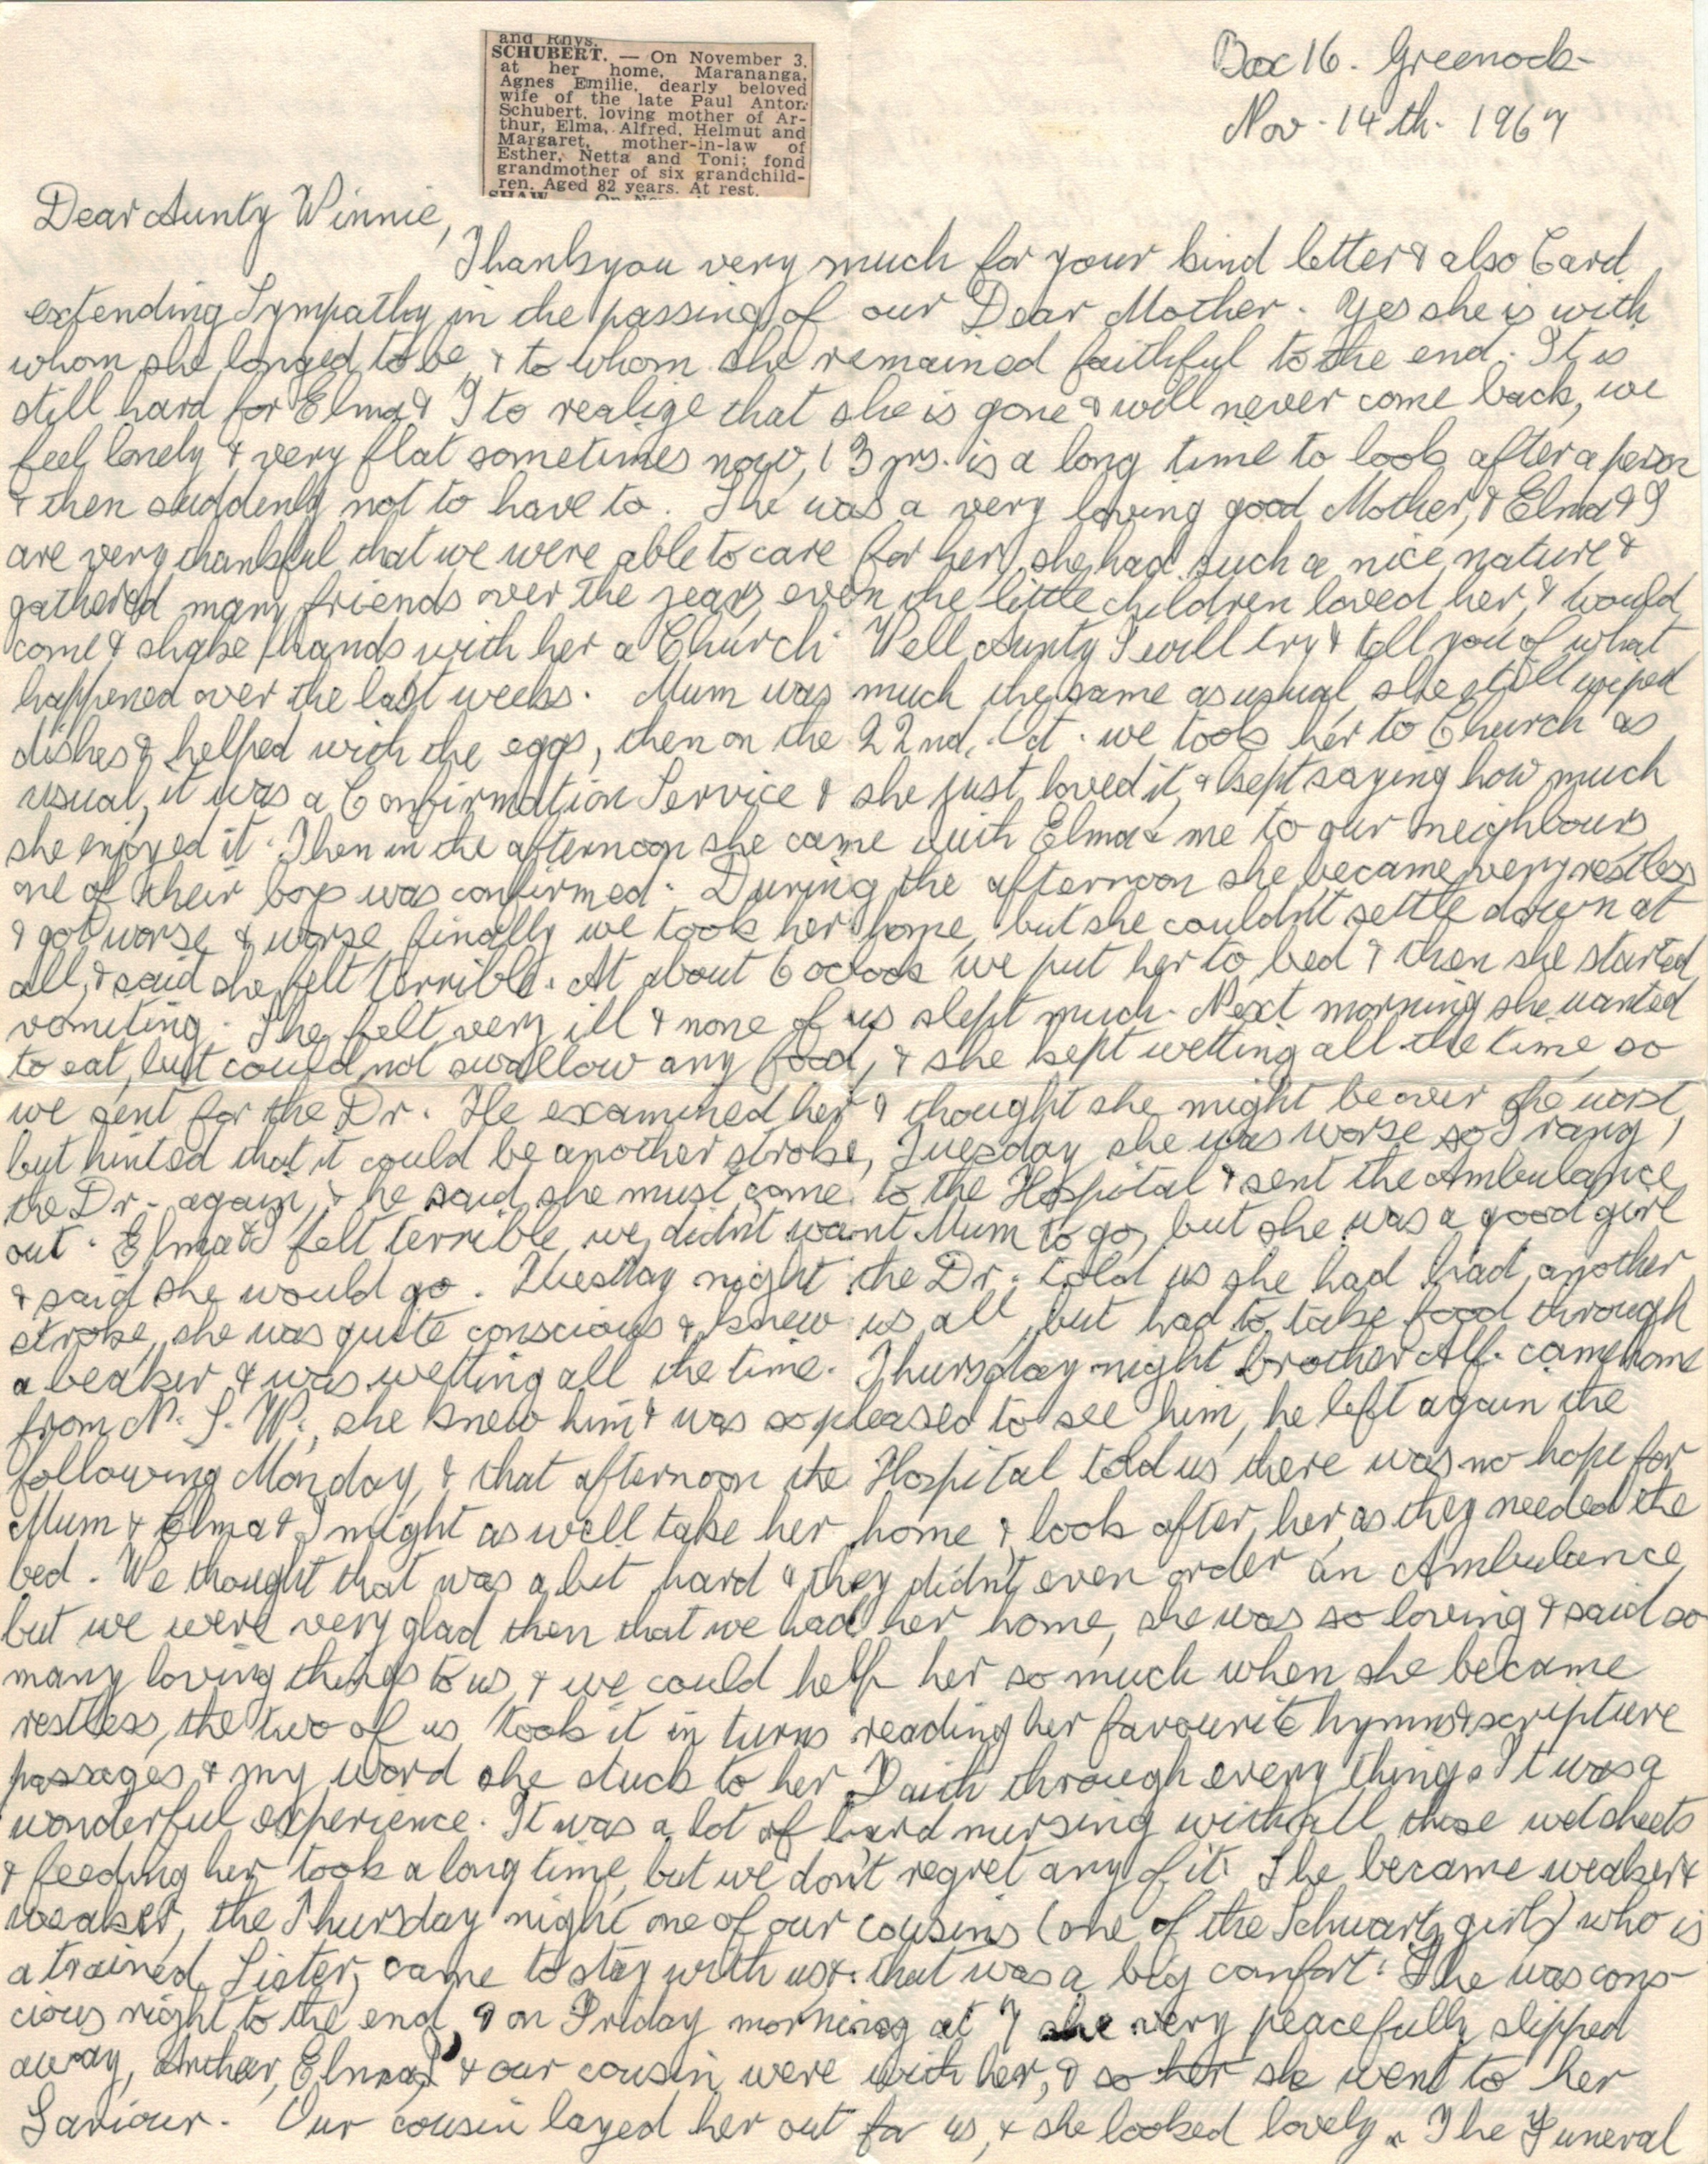 and Rhys.
SCHUBERT. — On November 3,
at her home, Marananga,
Agnes Emilie, dearly beloved
wife of the late Paul Anton
Schubert, loving mother of Ar-
thur, Elma, Alfred, Helmut and
Margaret, mother-in-law of
Esther, Netta and Toni; fond
grandmother of six grandchild-
ren. Aged 82 years. At rest.
SHAW On Nov
Box 16. Greenock
Nov. 14th. 1967
Dear Aunty Winnie,
Thankyou very much for your kind letter & also Card
extending Sympathy in the passing of our Dear Mother. Yes she is with
whom she longed to be, & to whom she remained faithful to the end. It is
still hard for Elma & I to realize that she is gone & will never come back, we
feel lonely & very flat sometimes now, 13 yrs. is a long time to look after a person
& then suddenly not to have to. She was a very loving good Mother, & Elma & I
are very thankful that we were able to care for her, she had such a nice nature &
gathered many friends over the years, even the little children loved her, & would
come & shake hands with her a Church. Well Aunty I will try & tell you of what
happened over the last weeks. Mum was much the same as usual, she still wiped
dishes & helped with the eggs, then on the 22nd. Oct. we took her to Church as
usual, it was a Confirmation Service & she just loved it, & kept saying how much
she enjoyed it. Then in the afternoon she came with Elma & me to our neighbours
one of their boys was confirmed. During the afternoon she became very restless
& got worse & worse, finally we took her home, but she couldn't settle down at
all, & said she felt terrible. At about 6 oclock we put her to bed & then she started
vomiting. She felt very ill & none of us slept much. Next morning she wanted
to eat, but could not swallow any food, & she kept wetting all the time, so
we sent for the Dr. He examined her & thought she might be over the worst,
but hinted that it could be another stroke, Tuesday she was worse so I rang
the Dr. again, & he said she must come to the Hospital & sent the Ambulance
out. Elma & I felt terrible, we didn't want Mum to go, but she was a good girl
& said she would go. Tuesday night the Dr. told us she had had another
stroke, she was quite conscious & knew us all, but had to take food through
a beaker & was wetting all the time. Thursday night brother Alf. came home
from N. S. W., she knew him & was so pleased to see him, he left again the
following Monday, & that afternoon the Hospital told us there was no hope for
Mum & Elma & I might as well take her home & look after her, as they needed the
bed. We thought that was a bit hard & they didn't even order an Ambulance,
but we were very glad then that we had her home, she was so loving & said so
many loving things to us, & we could help her so much when she became
restless, the two of us took it in turns reading her favourite hymns & scripture
passages, & my word she stuck to her Faith through every thing. It was a
wonderful experience. It was a lot of hard nursing with all those wet sheets
& feeding her took a long time, but we don't regret any of it. She became weaker &
weaker, the Thursday night one of our cousins (one of the Schwartz girls) who is
a trained Sister, came to stay with us & that was a big comfort. She was cons-
cious right to the end, & on Friday morning at 7 she very peacefully slipped
away, Arthur, Elma, I & our cousin were with her, & so her she went to her
Saviour. Our cousin layed her out for us, & she looked lovely. The Funeral